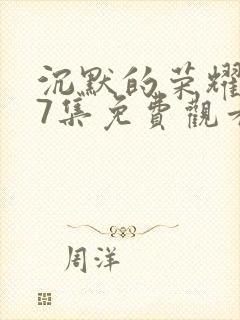 沉默的荣耀
7集免費觀看
周洋